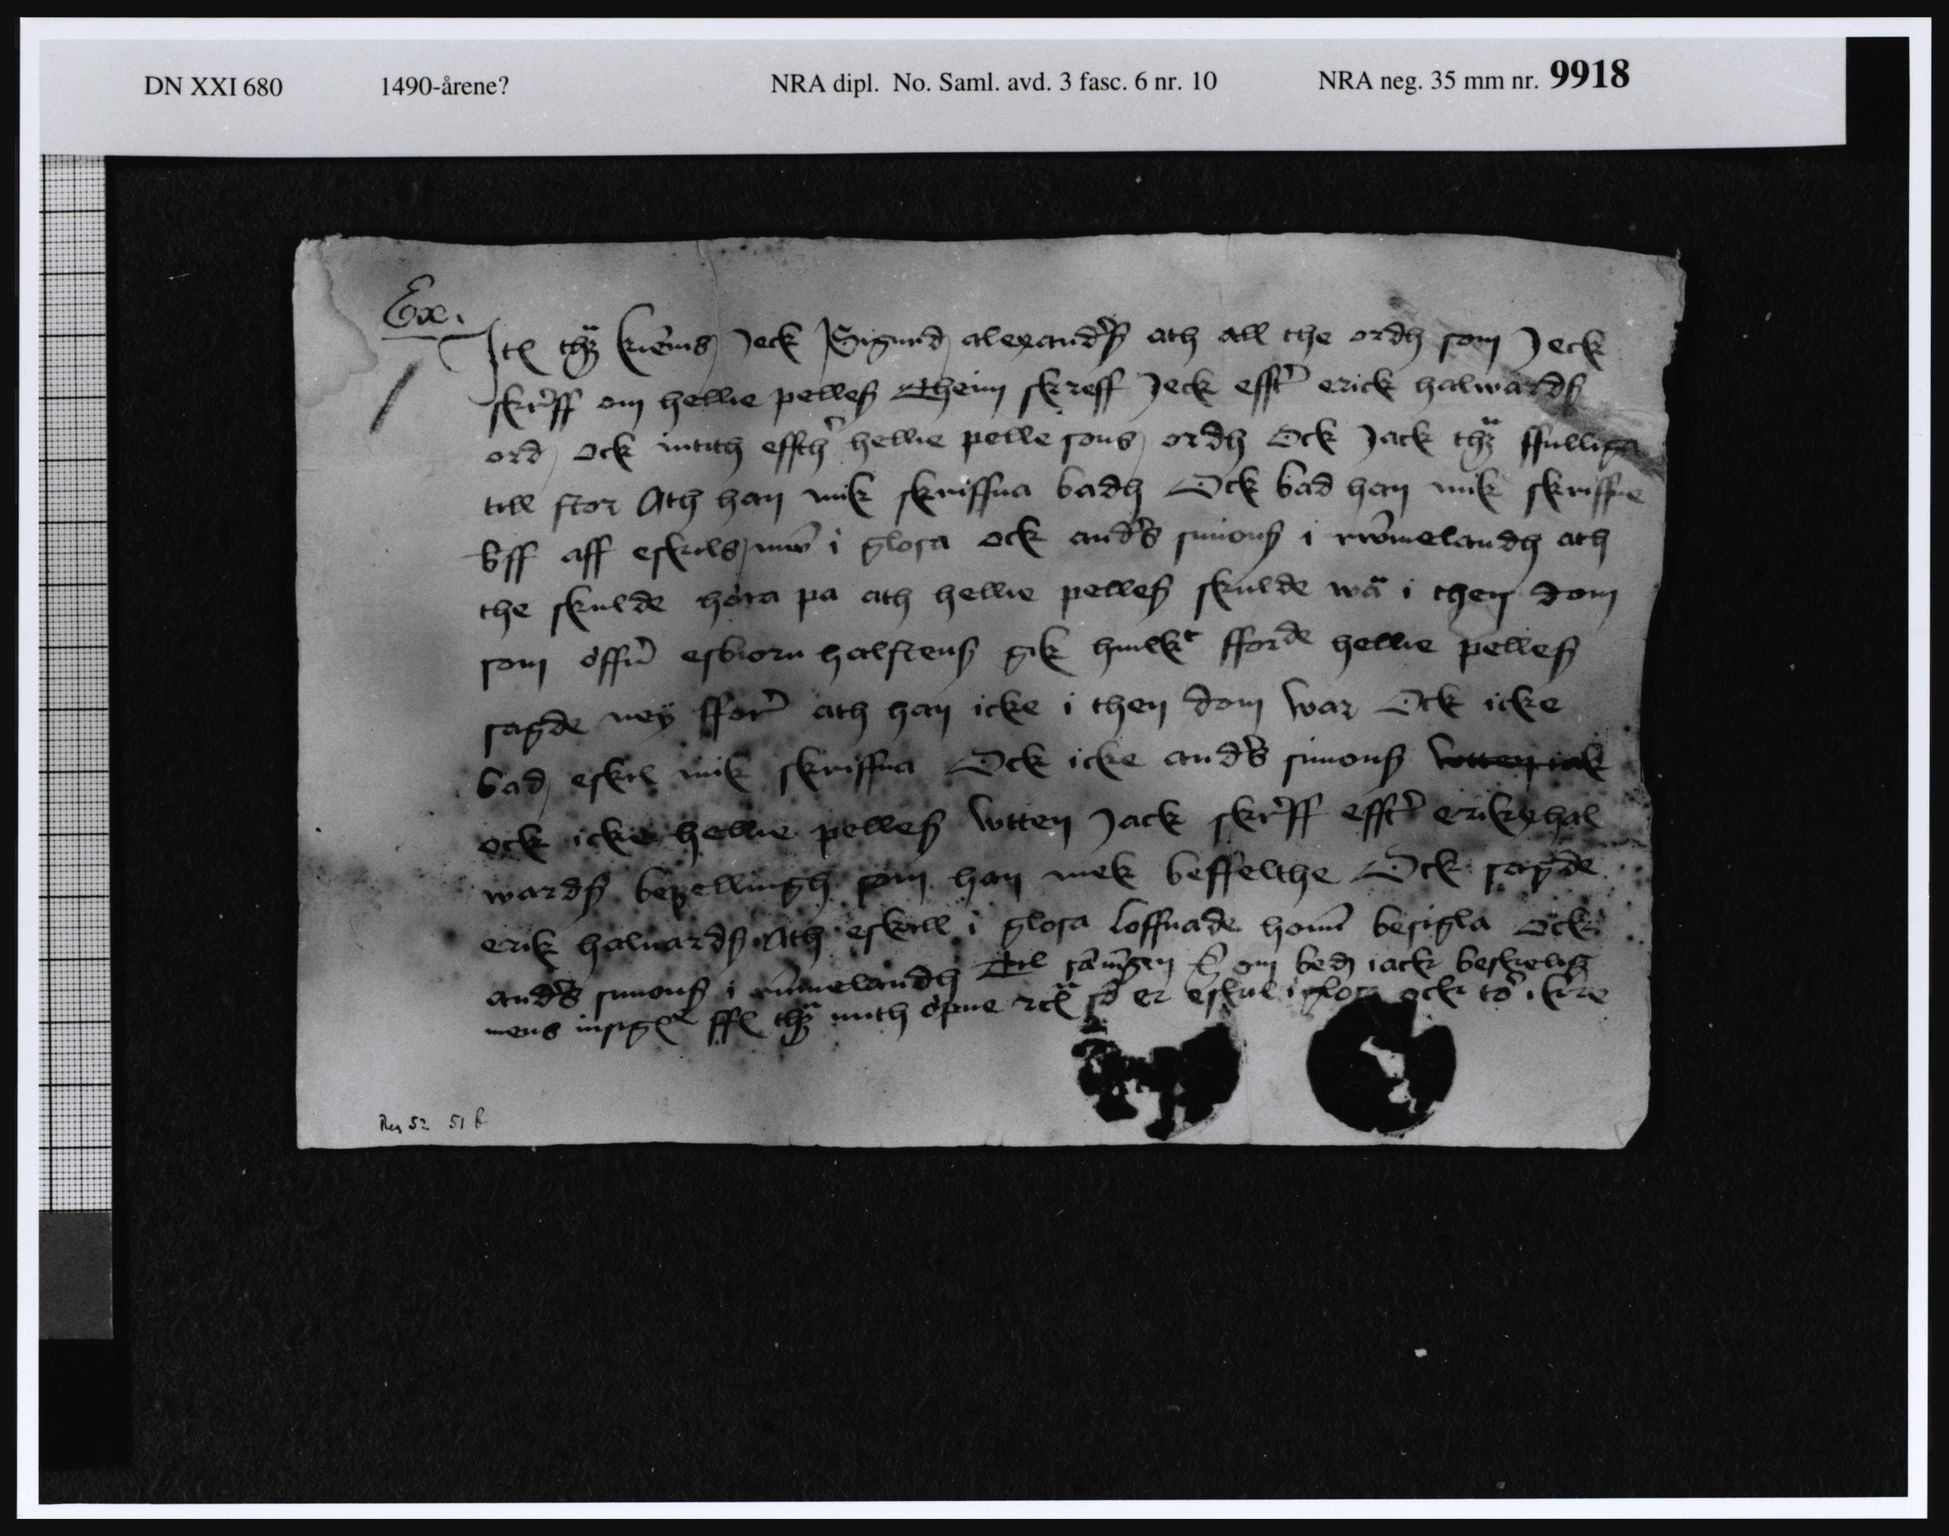 DN XXI 680 1490-årene? NRA dipl. No. Saml. avd. 3 fasc. 6 nr. 10 NRA neg. 35 mm nr. 9918
Ex.
Jtem thz Jeck Sigurd alexanders ath all the ordh som Jeck
skreff om hellie pelles Them skreff Jeck effter erick halwards
ord ock intith effther hellie pelle sons ordh Ock Jack thz ffulliga
till stor Ath han mik skriffua badh Ock bad han mik skriffue
bff aff eskils i glosa ock anders simons i rwmelandh ath
the skulde höra pa ath hellie pelles skulde wa i then dom
som öffuer esbiorn halstens gik huilkt fforde hellie pelles
sagde ney fforer ath han icke i then dom war Ock icke
bad eskil mik skriffua Ock icke anders simons wtten iak
ock icke hellie pelles wtten Jack skreff effter erik hal
wards beffellingh som han mek beffelthe Ock sagde
erik haluards Ath eskill i glosa loffuade honum besigla ock
anders simons i rumelandh Til om bedh iack beskelig
mens insigle ffor thz mith öpne er eskil i glosa ock
Reg 52 51 b